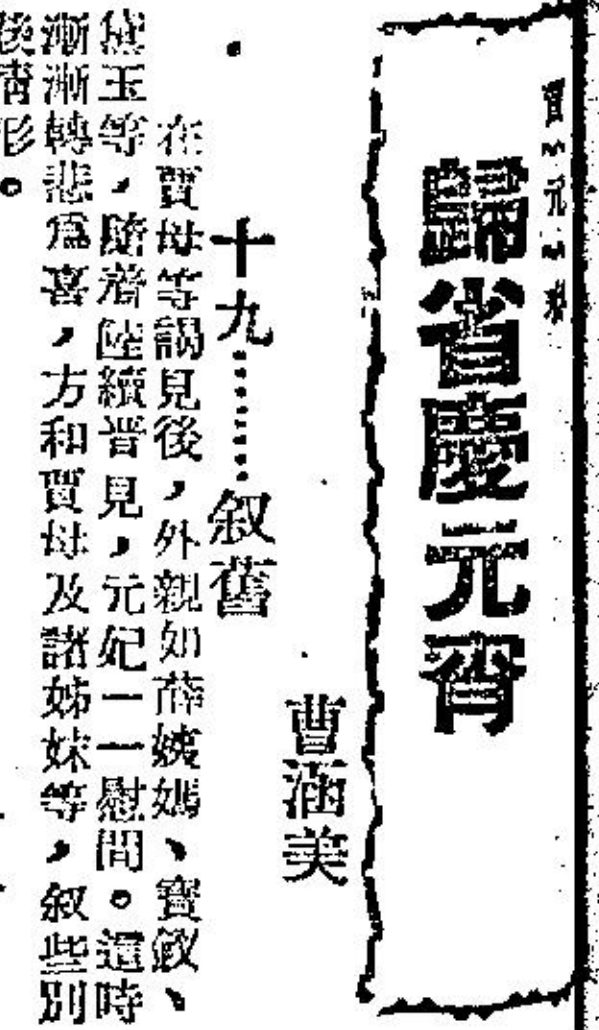 賈元春
歸省慶元宵
曹涵美
十九………敘舊
在賈母等謁見後，外親如薛姨媽、寶釵、
黛玉等，隨着陸續晋見，元妃一一慰問。這時
漸漸轉悲爲喜，方和賈母及諸姊妹等，敘些別
後情形。